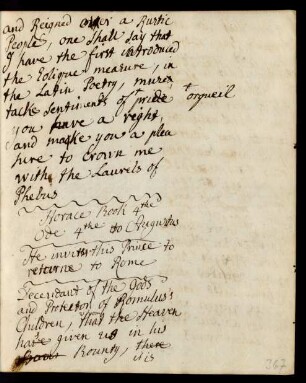 and Reigned over a Rustic
People, one shall say that
I have the first introduced
the Eolique measure, in
the Latin Poetry, muse,
take sentiments of pride + orgueil
you have a right,
and make you a plea
sure to crown me
with the Laurels of
Phebus
Horace Book 4the
Ode 4the to Augustus
He invits this Prince to
returne to Rome
Decendant of the Gods
and Protector of Romulus's
Children, that the Heaven
have given us in his
Bounty, there
is
367